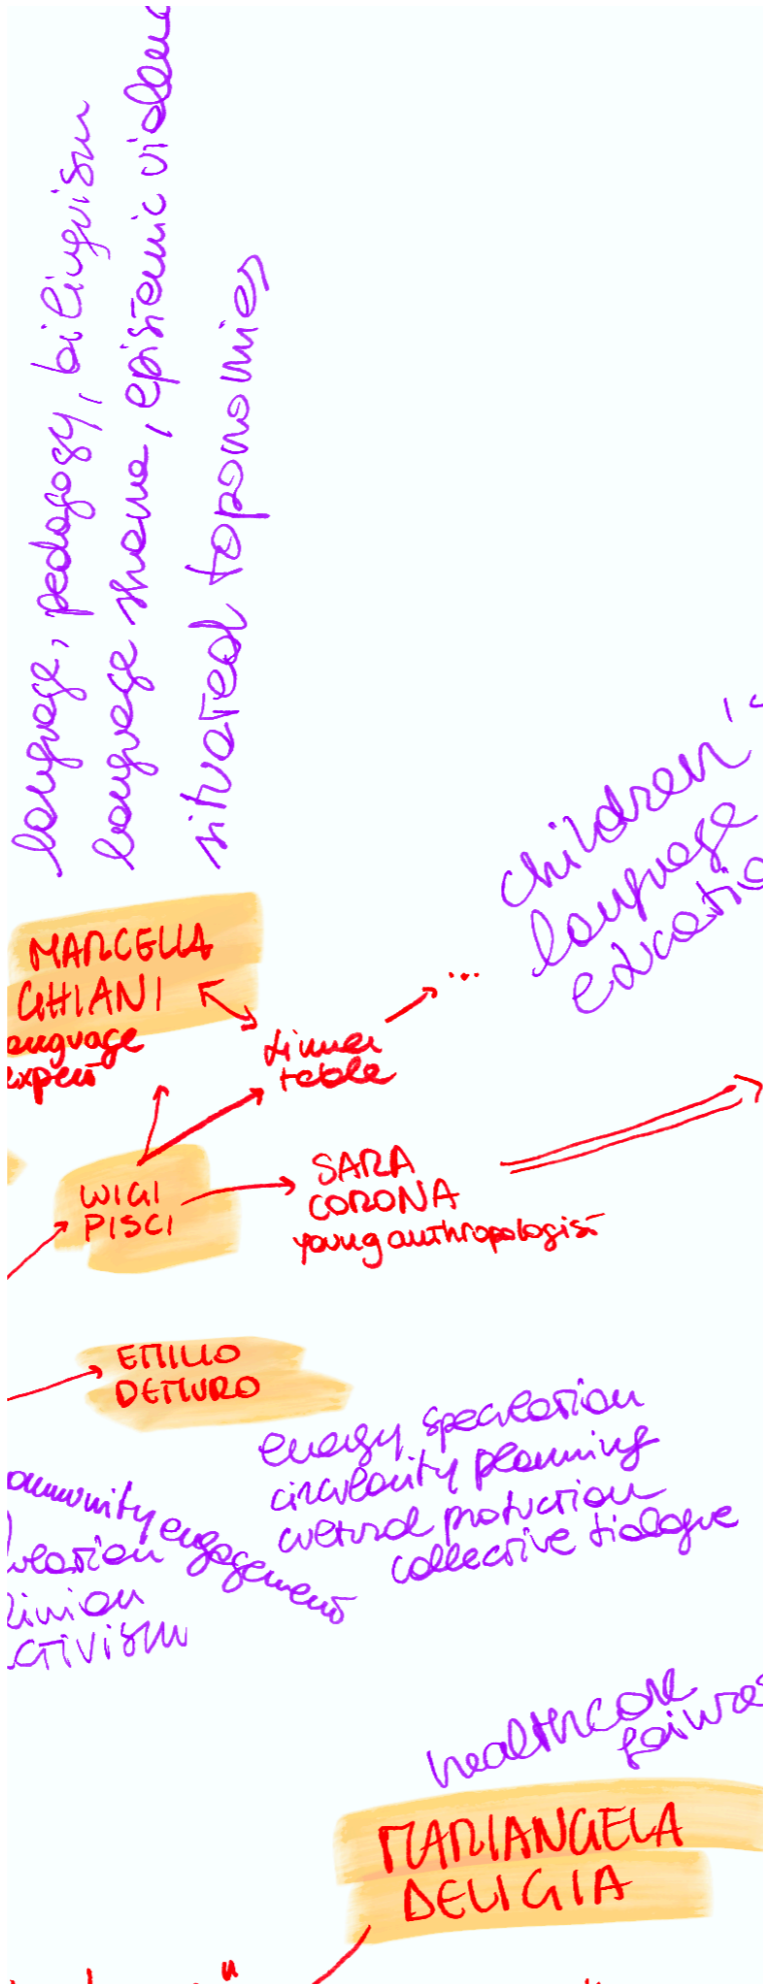 language, pedagogy, bilinguism
language shame, epistemic violence
situated toponomies
children's
language
educatio
MARCELLA
GHIANI
anguage
expert
dinner
table
...
WIGI
PISCI
SARA
CORONA
young anthropologist
EMILIO
DEMURO
energy speculation
circularity planning
cultural production
collective dialogue
ommunity engagement
inion
ctivism
healthcare
MARIANGELA
DELIGIA